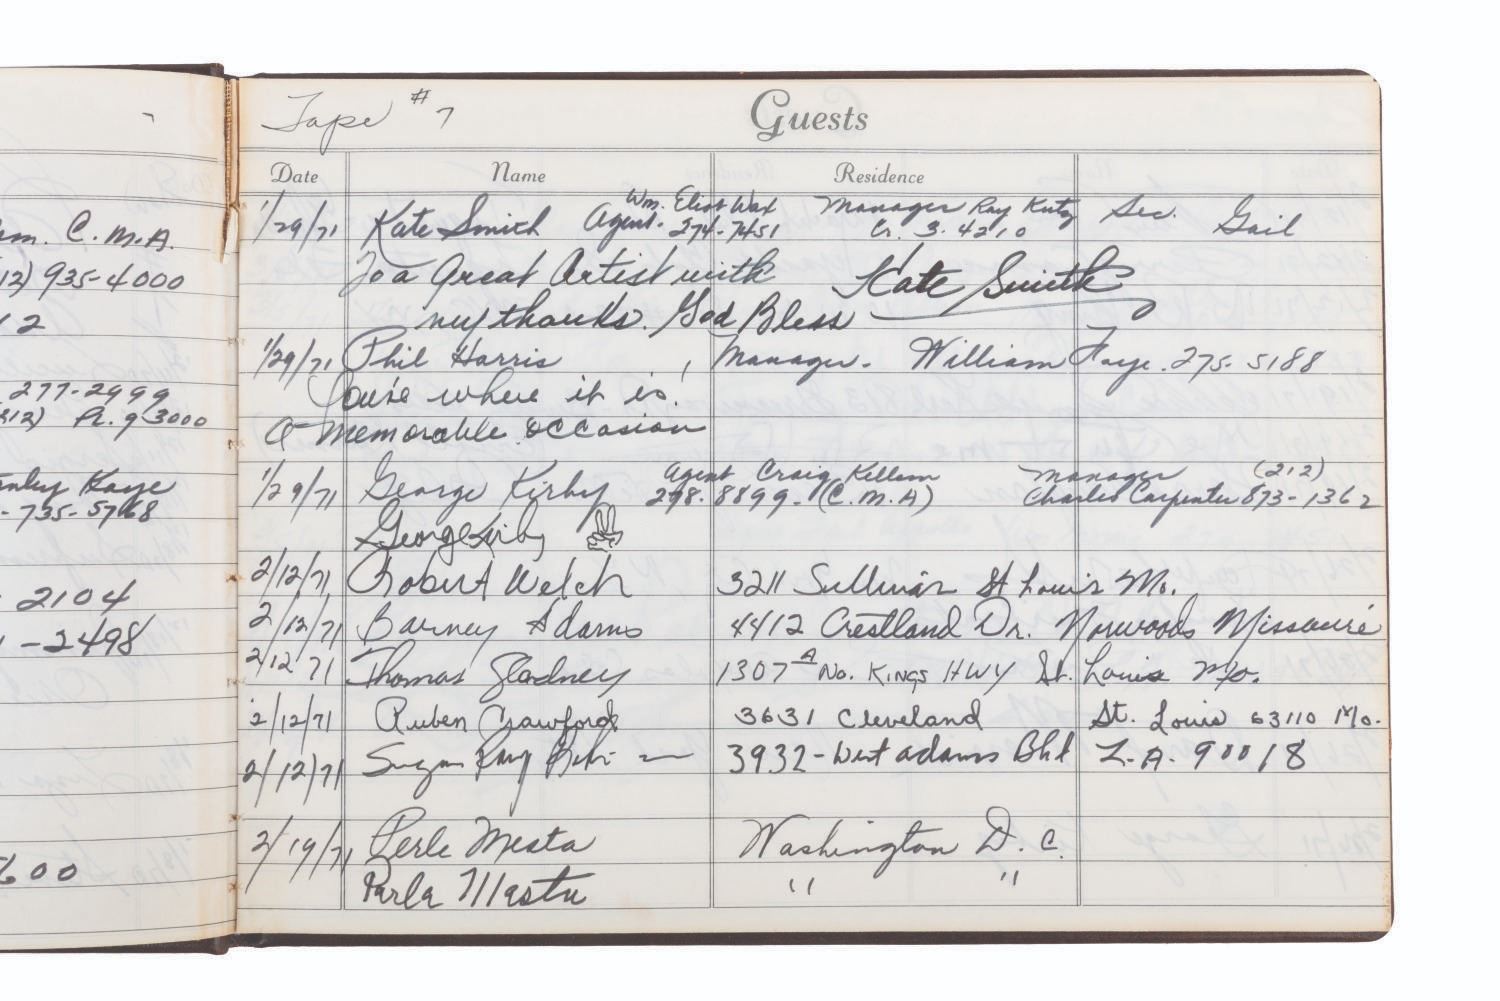 7
C.M.A.
935-4000
12
277-2999
312) Pr. 9 3000
Kaye
735-5768
2104
-2498
600
Tape #7
Guests
Date Name Residence
1/29/71 Kate Smith Agent. Wm. Eliot Wax 274-7451 Manager Ray Katz Cr. 3. 4210 Sec. Gail
To a Great Artist with Kate Smith
my thanks. God Bless
1/29/71 Phil Harris , Manager. William Faye. 275-5188
You're where it is.
A memorable occasion
1/29/71 George Kirby Agent Craig Kellem 298-8899-(C.M.A) Manager Charles Carpenter (212) 873-1362
George Kirby
2/12/71 Robert Welch 3211 Sullivan St Louis Mo.
2/12/71 Barney Adams 4412 Crestland Dr. Norwoods Missouri
2/12 71 Thomas Gladney 1307 A No. Kings HWY St. Louis Mo.
2/12/71 Ruben Crawford 3631 Cleveland St. Louis 63110 Mo.
2/12/71 Suzan Kay — 3932-West Adams Blvd L.A. 90018
2/19/71 Perle Mesta Washington D.C.
Perle Mesta " "